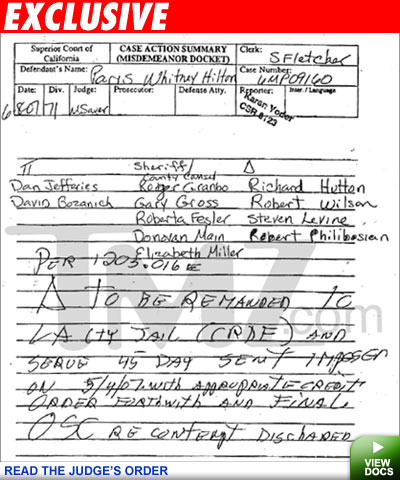 EXCLUSIVE
Superior Court of California
CASE ACTION SUMMARY (MISDEMEANOR DOCKET)
Clerk: S Fletcher
Defendant's Name: Paris Whitney Hilton
Case Number: 6MP09160
Date: Div. Judge: Prosecutor: Defense Atty. Reporter: Inter. / Language
6/8/07 71 MSauer Karen Yoder
CSR 8123
π Sheriff Δ
County Counsel
Dan Jefferies Roger Granbo Richard Hutton
David Bozanich Gary Gross Robert Wilson
Roberta Fesler Steven Levine
Donovan Main Robert Philibosian
Elizabeth Miller
PER 1203.016 E
Δ TO BE REMANDED TO
LA CTY JAIL (CRDF) AND
SERVE 45 DAY SENT IMPOSED
ON 5/4/07 with APPROPRIATE CREDIT
ORDER FORTHWITH AND FINAL
OSC RE contempt DISCHARED
TMZ.com
READ THE JUDGE'S ORDER
VIEW DOCS